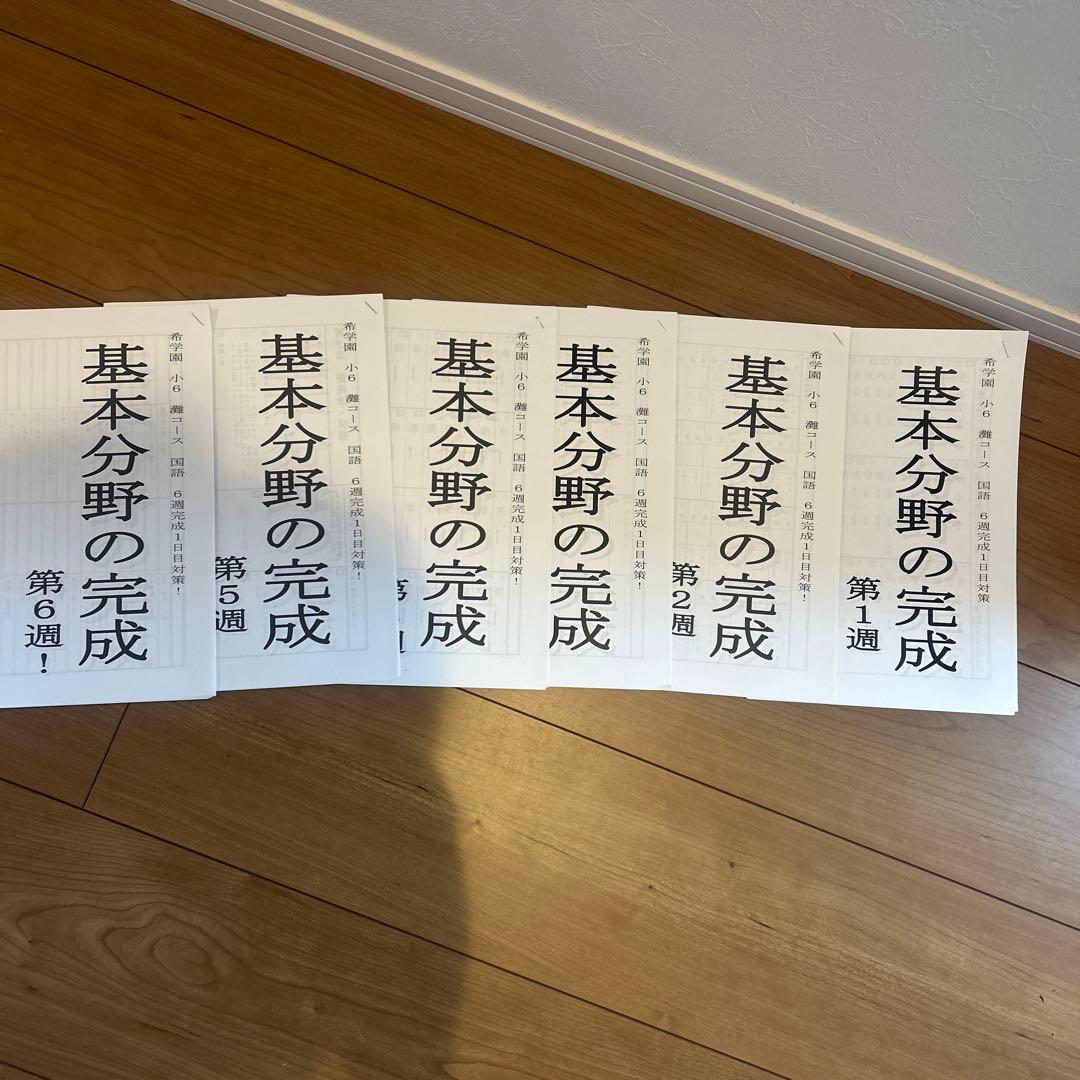 希学園 小6 灘コース 国語 6週完成1日目対策
基本分野の完成
第1週
希学園 小6 灘コース 国語 6週完成1日目対策！
基本分野の完成
第2週
希学園 小6 灘コース 国語 6週完成1日目対策！
基本分野の完成
希学園 小6 灘コース 国語 6週完成1日目対策！
基本分野の完成
第 週
希学園 小6 灘コース 国語 6週完成1日目対策！
基本分野の完成
第5週
基本分野の完成
第6週！